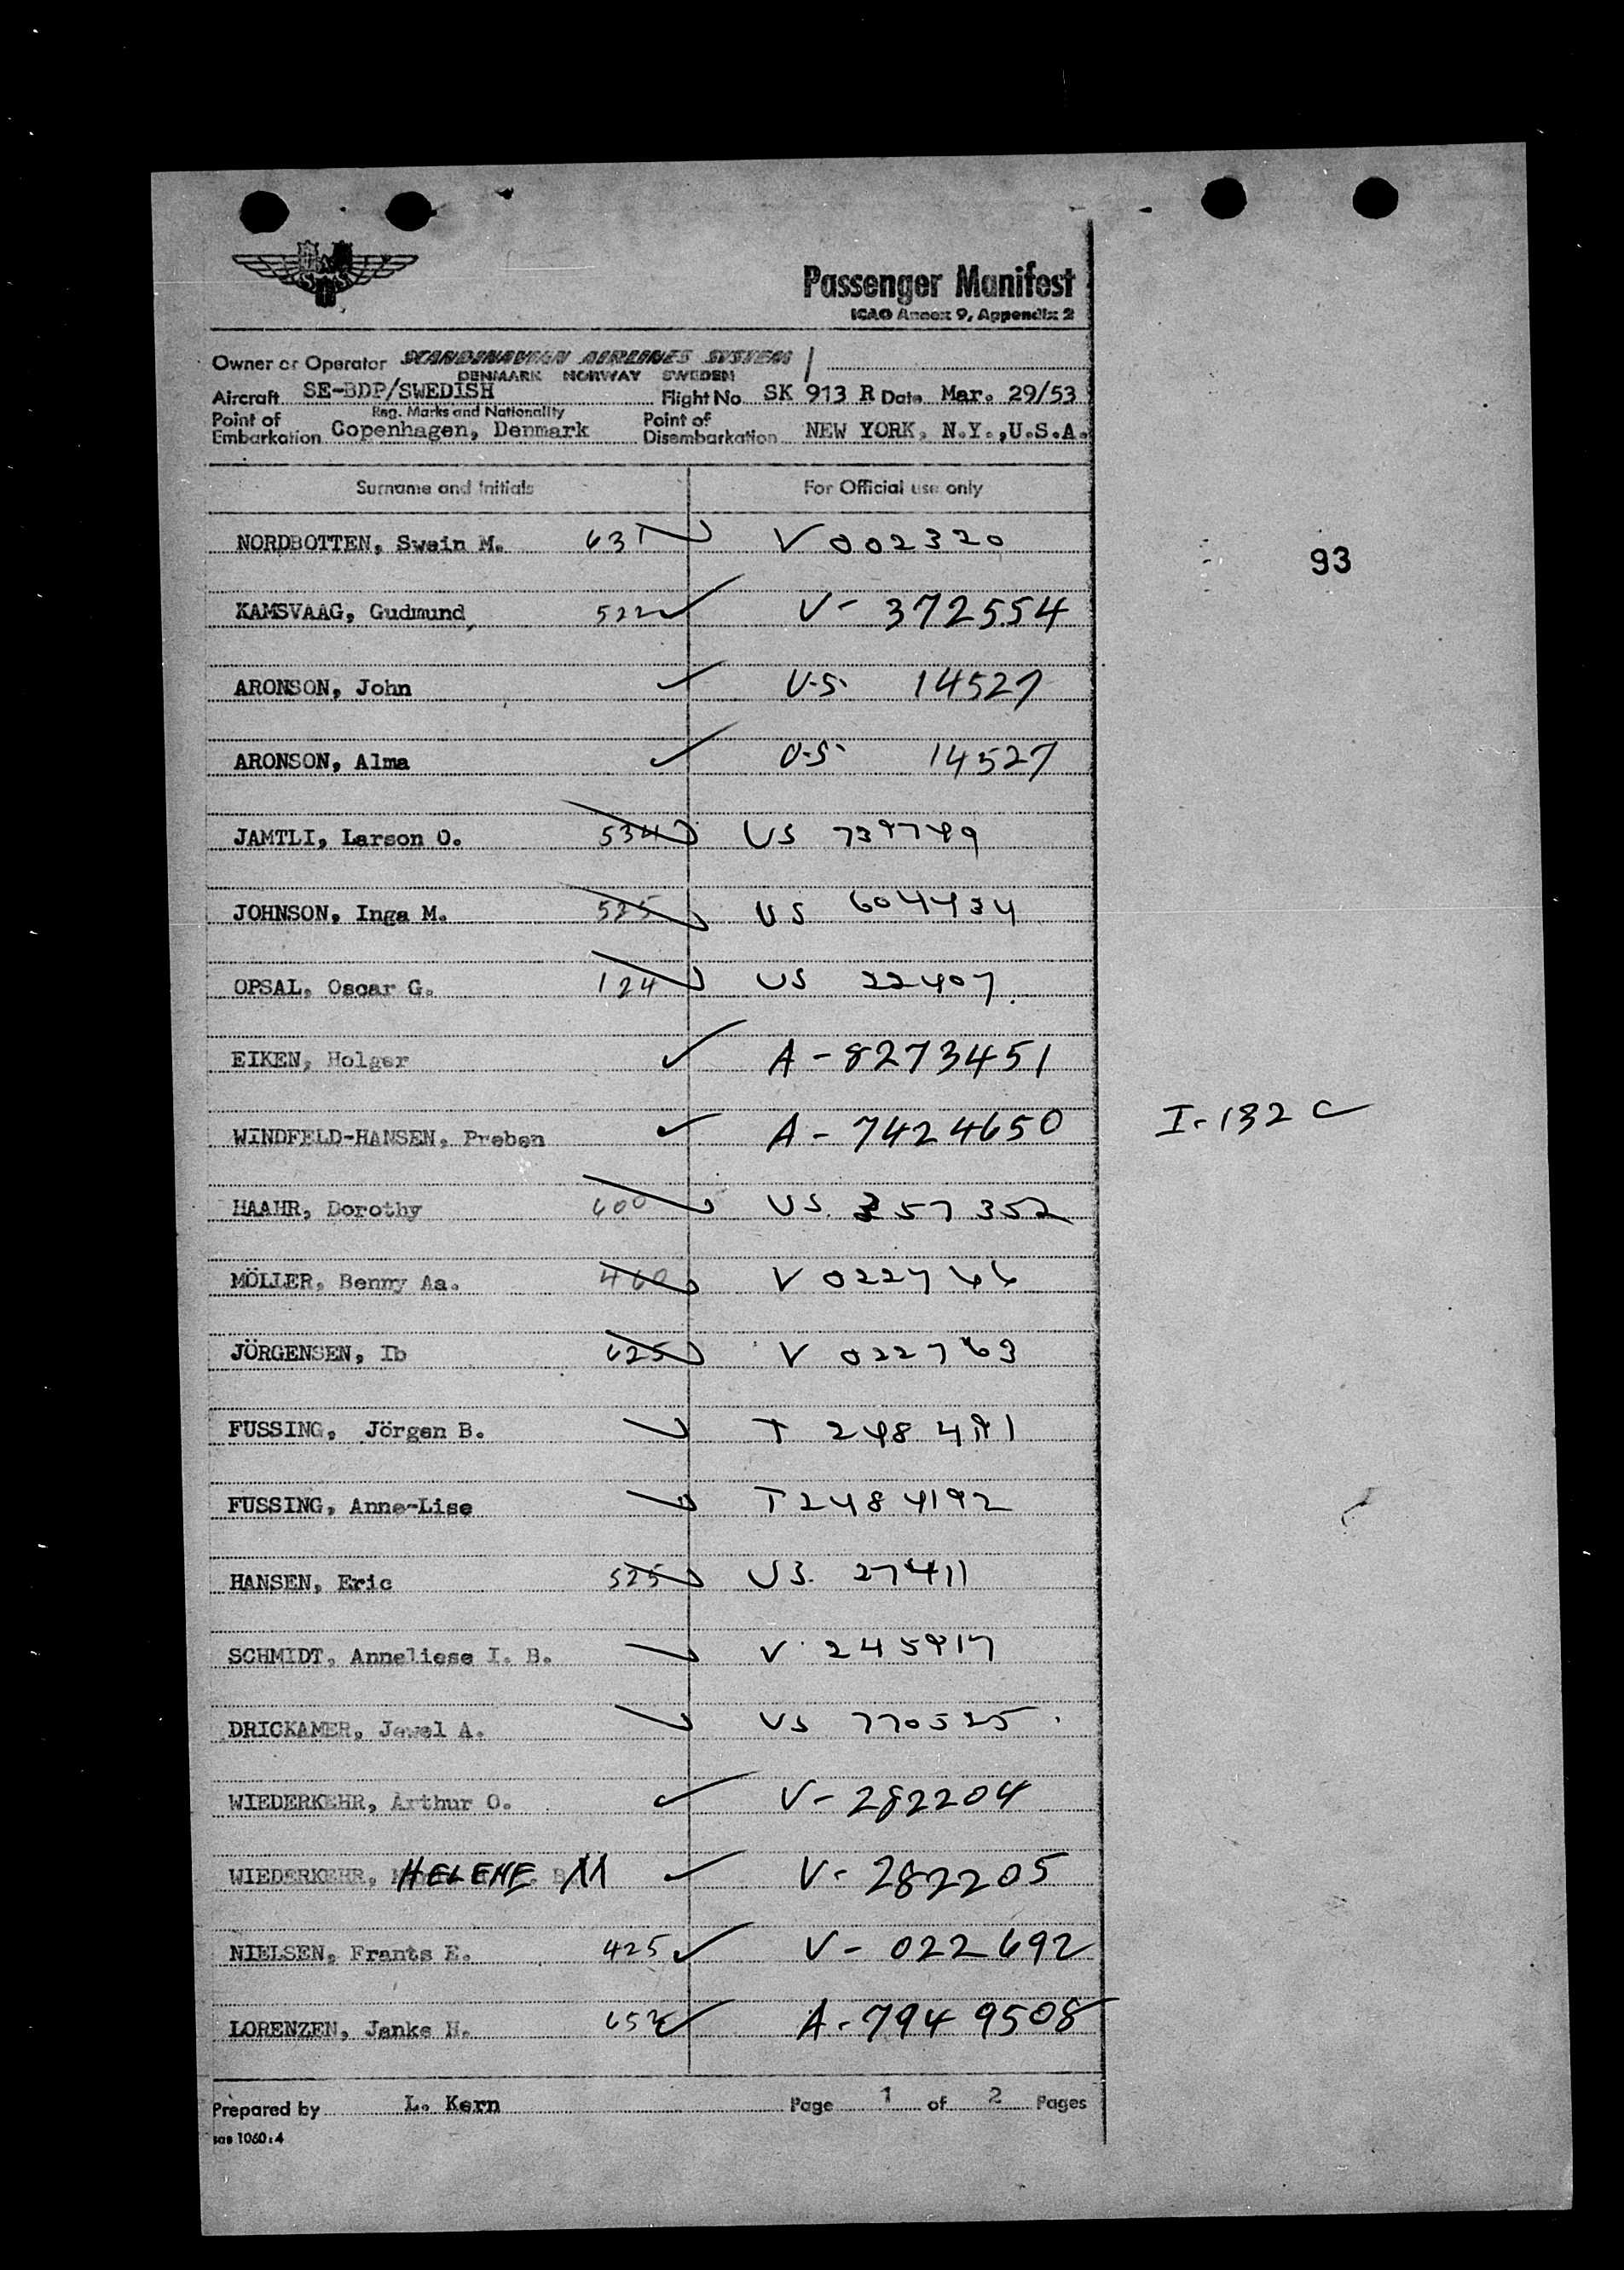 Passenger Manifest
ICAO Annex 9, Appendix 2
Owner or Operator SCANDINAVIAN AIRLINES SYSTEM
DENMARK NORWAY SWEDEN
Aircraft SE-BDP/SWEDISH Flight No. SK 913 R Date Mar. 29/53
Reg. Marks and Nationality
Point of Embarkation Copenhagen, Denmark Point of Disembarkation NEW YORK, N.Y., U.S.A.
Surname and Initials For Official use only
NORDBOTTEN, Swein M. 631 V 002320
93
KAMSVAAG, Gudmund, 522 V- 372554
ARONSON, John U.S. 14527
ARONSON, Alma U.S. 14527
JAMTLI, Larson O. 534 US
JOHNSON, Inga M. 525 US 604434
OPSAL, Oscar G. 124 US 22407
EIKEN, Holger A-8273451
WINDFELD-HANSEN, Preben A-7424650 I-132 C
HAAHR, Dorothy 600 US 357352
MÖLLER, Benny Aa. 460 V 022766
JÖRGENSEN, Ib 625 V 022763
FUSSING, Jörgen B. T 2484191
FUSSING, Anne-Lise T2484192
HANSEN, Eric 525 US. 27411
SCHMIDT, Anneliese I. B. V 245917
DRICKAMER, Jewel A. US 770525
WIEDERKEHR, Arthur O. V-282204
WIEDERKEHR, HELENE M V-282205
NIELSEN, Frants E. 425 V- 022692
LORENZEN, Janke H. A-7949508
Prepared by L. Kern Page 1 of 2 Pages
sas 1060:4